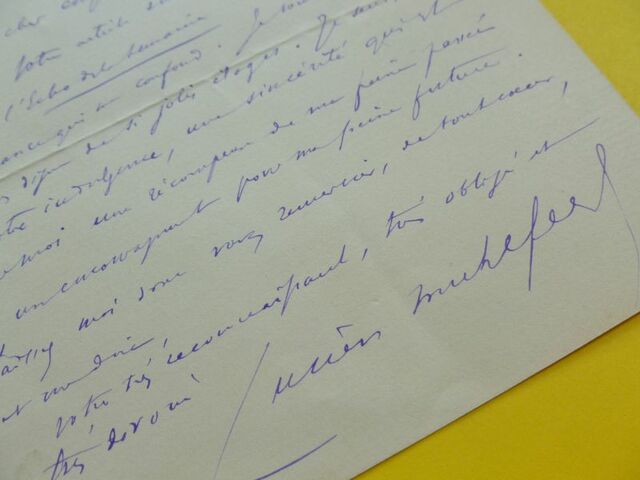 cher
Votre article
l'Echo de la Semaine
qui me confond. Je
de si jolis éloges. Je
indulgence, une sincérité qui est
moi une récompense de ma peine passée
un encouragement pour ma peine future.
moi donc vous remercier, de tout cœur,
et me dire,
votre très reconnaissant, très obligé et
très dévoué
Lucien Muhlfeld